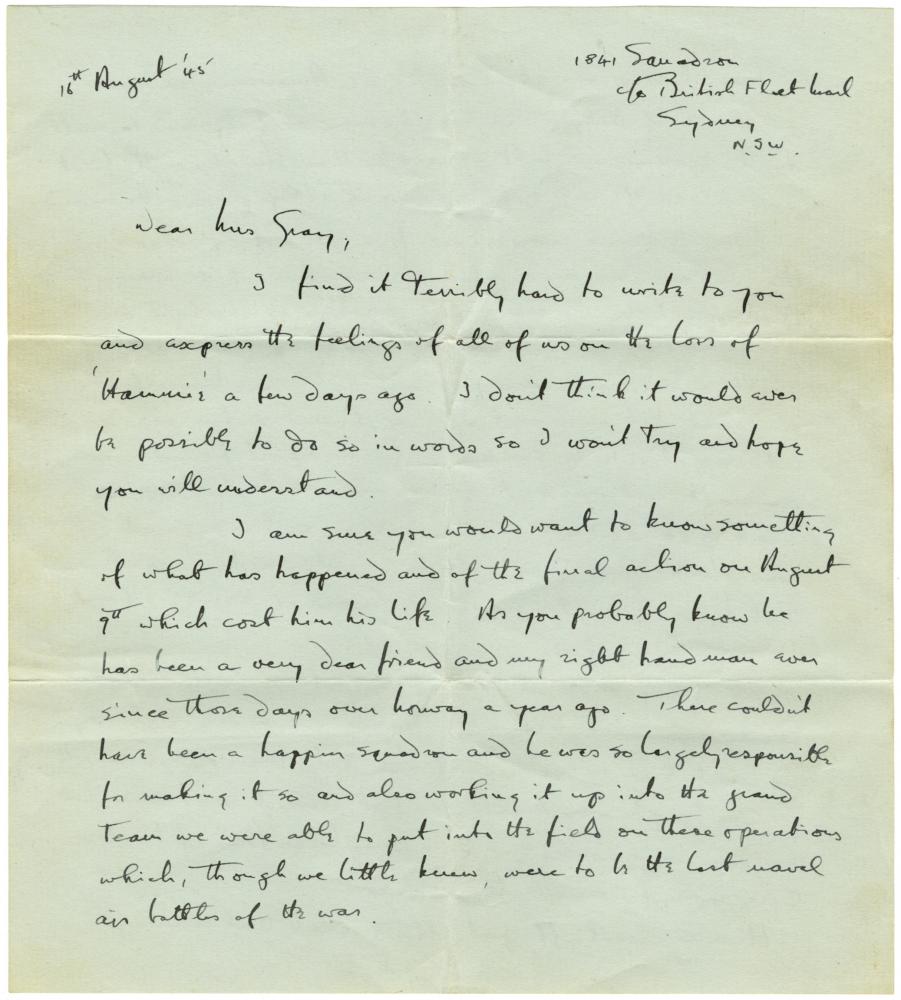 16th August '45
1841 Squadron
c/o British Fleet Mail
Sydney
N.S.W.
Dear Mrs Gray,
I find it terribly hard to write to you
and express the feelings of all of us on the loss of
'Hammie' a few days ago. I don't think it would ever
be possible to do so in words so I won't try and hope
you will understand.
I am sure you would want to know something
of what has happened and of the final action on August
9th which cost him his life. As you probably know he
has been a very dear friend and my right hand man ever
since those days over Norway a year ago. There couldn't
have been a happier squadron and he was so largely responsible
for making it so and also working it up into the grand
team we were able to put into the field on these operations
which, though we little knew, were to be the last naval
air battles of the war.